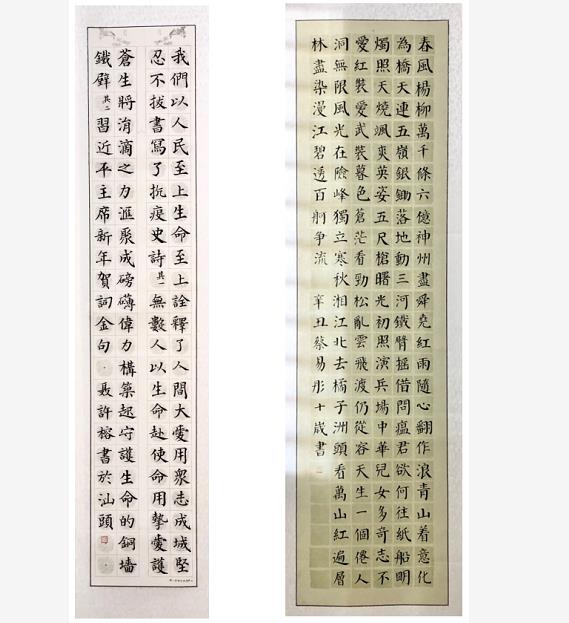 我們以人民至上生命至上詮釋了人間大愛用眾志成城堅
忍不拔書寫了抗疫史詩其一無數人以生命赴使命用摯愛護
蒼生將涓滴之力滙聚成磅礴偉力構築起守護生命的銅墻
鐵壁其二習近平主席新年賀詞金句·聂許榕書於汕頭
春風楊柳萬千條六億神州盡舜堯紅雨隨心翻作浪青山着意化
為橋天連五嶺銀鋤落地動三河鐵臂摇借問瘟君欲何往紙船明
燭照天燒颯爽英姿五尺槍曙光初照演兵場中華兒女多奇志不
愛紅裝愛武裝暮色蒼茫看勁松亂雲飛渡仍從容天生一個僊人
洞無限風光在險峰獨立寒秋湘江北去橘子洲頭看萬山紅遍層
林盡染漫江碧透百舸争流 辛丑蔡易彤十歲書